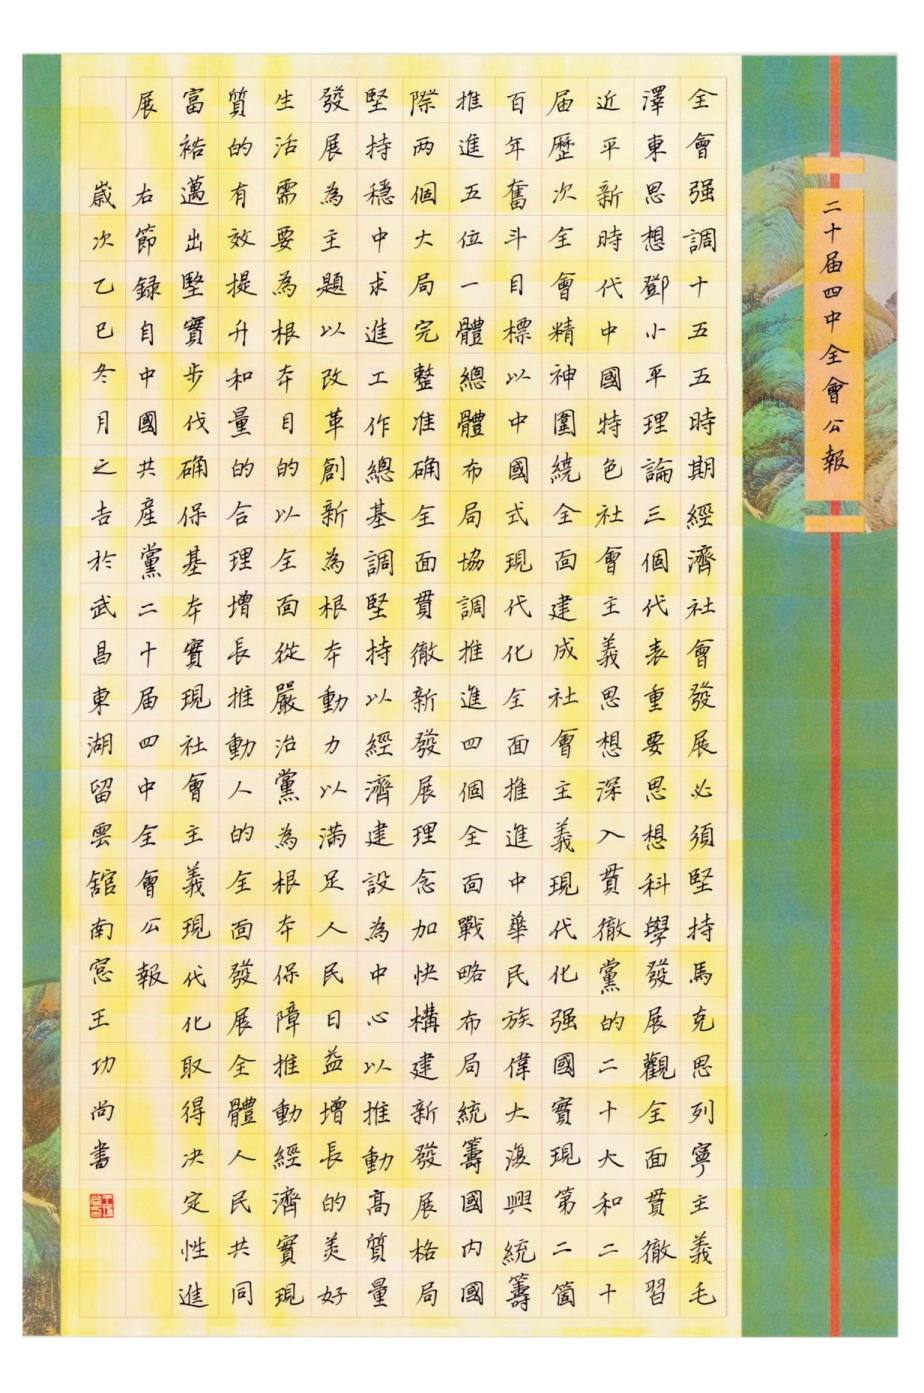 二十届四中全會公報
全會强調十五五時期經濟社會發展必須堅持馬克思列寧主義毛
澤東思想鄧小平理論三個代表重要思想科學發展觀全面貫徹習
近平新時代中國特色社會主義思想深入貫徹黨的二十大和二十
届歷次全會精神圍繞全面建成社會主義現代化强國實現第二箇
百年奮斗目標以中國式現代化全面推進中華民族偉大復興統籌
推進五位一體總體布局協調推進四個全面戰略布局統籌國内國
際两個大局完整准确全面貫徹新發展理念加快構建新發展格局
堅持穩中求進工作總基調堅持以經濟建設為中心以推動高質量
發展為主題以改革創新為根本動力以滿足人民日益增長的美好
生活需要為根本目的以全面從嚴治黨為根本保障推動經濟實現
質的有效提升和量的合理增長推動人的全面發展全體人民共同
富裕邁出堅實步伐确保基本實現社會主義現代化取得决定性進
展 右節録自中國共産黨二十届四中全會公報
歲次乙巳冬月之吉於武昌東湖留雲舘南窓王功尚書